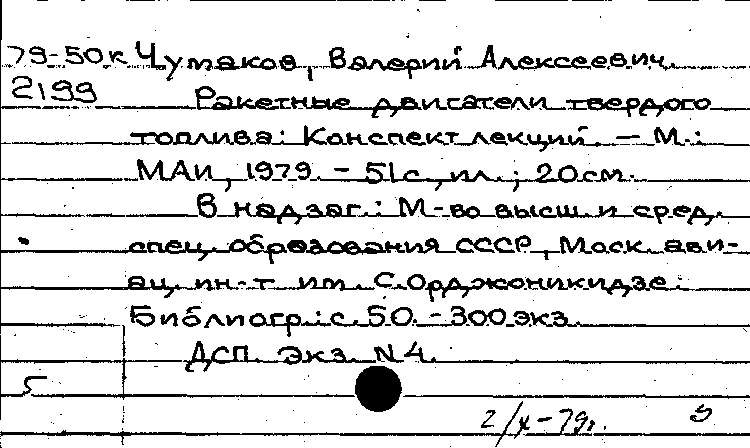 79-50к Чумаков, Валерий Алексеевич.
2199 Ракетные двигатели твердого
топлива: Конспект лекций. — М.:
МАИ, 1979. - 51с., ил.; 20см.
В надзаг.: М-во высш. и сред.
спец. образования СССР, Моск. ави-
ац. ин-т им. С. Орджоникидзе.
Библиогр.: с. 50. - 300 экз.
ДСП. Экз. N4.
5
2/X-79г.